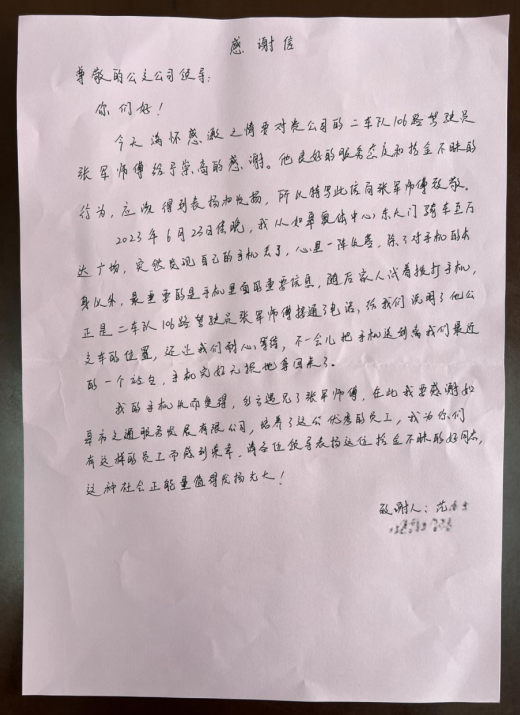 感谢信
尊敬的公交公司领导:
你们好!
今天满怀感激之情要对贵公司的二车队106路驾驶员
张军师傅给予崇高的感谢。他良好的服务态度和拾金不昧的
行为,应该得到表扬和发扬,所以特写此信向张军师傅致敬。
2023年6月23日傍晚,我从如皋奥体中心东大门骑车至万
达广场,突然发现自己的手机丢了,心里一阵失落,除了对手机的本
身以外,最重要的是手机里面的重要信息,随后家人试着拨打手机,
正是二车队106路驾驶员张军师傅接通了电话,给我们说明了他公
交车的位置,还让我们耐心等待,不一会儿把手机送到离我们最近
的一个站台,手机完好无损地拿回来了。
我的手机失而复得,多亏遇见了张军师傅,在此我要感谢如
皋市交通服务发展有限公司,培养了这么优秀的员工,我为你们
有这样的员工而感到荣幸。请各位领导表扬这位拾金不昧的好同志,
这种社会正能量值得发扬光大!
致谢人:范